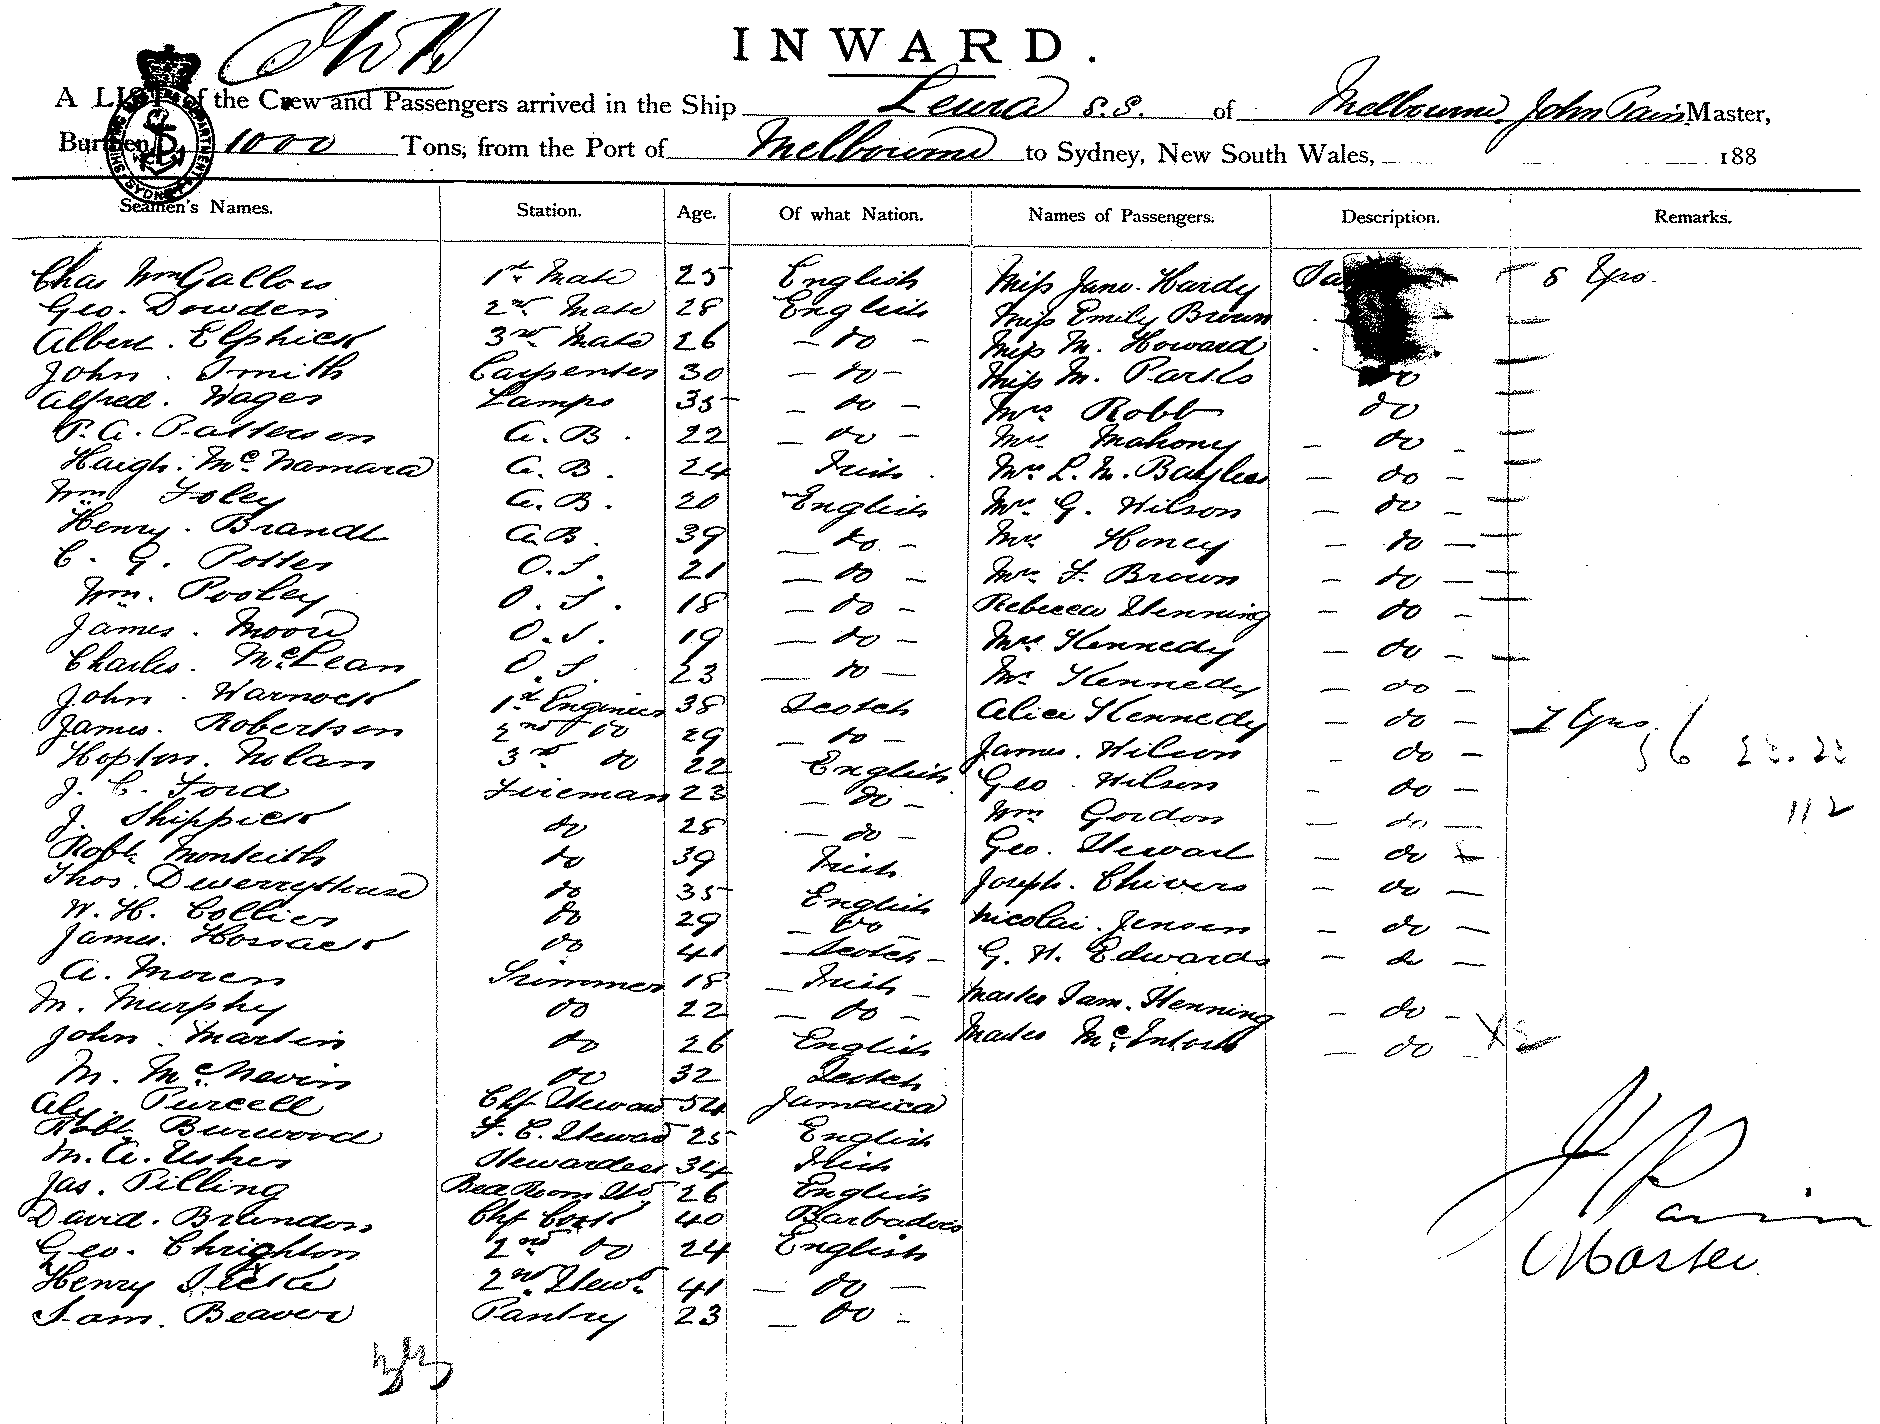 INWARD.
A LIST of the Crew and Passengers arrived in the Ship Leura S.S. of Melbourne, John Pain Master,
Burthen 1000 Tons, from the Port of Melbourne to Sydney, New South Wales, 188
Seamen's Names. Station. Age. Of what Nation. Names of Passengers. Description. Remarks.
Chas Wm Gallow 1st Mate 25 English Miss Jane Hardy 8 Yrs.
Geo. Dowden 2nd Mate 28 English Miss Emily Brown
Albert Elphick 3rd Mate 26 - do - Miss M. Howard
John Smith Carpenter 30 - do - Miss M. Parks do
Alfred Wages Lamps 35 - do - Mrs Robb do
P. A. Patterson A. B. 22 - do - Mrs Mahony - do -
Haigh McNamara A. B. 24 Irish Mrs L. M. Bayless - do -
Wm Foley A. B. 20 English Mr. G. Wilson - do -
Henry Brandt A. B. 39 - do - Mrs Honey - do -
C. G. Potter O. S. 21 - do - Mrs F. Brown - do -
Wm. Pooley O. S. 18 - do - Rebecca Henning - do -
James Moore O. S. 19 - do - Mrs Kennedy - do -
Charles McLean O. S. 23 - do - Mr Kennedy - do -
John Warnock 1st Engineer 38 Scotch Alice Kennedy - do - 7 Yrs
James Robertson 2nd do 29 - do - James Wilson do -
Hopton Nolan 3rd do 22 English Geo Wilson - do -
J. C. Ford Fireman 23 - do - Wm Gordon - do -
J. Shippick do 28 - do - Geo. Stewart - do
Robt Monteith do 39 Irish Joseph Chivers - do -
Thos. Dewerryhouse do 35 English Nicolai Jensen - do -
W. H. Collier do 29 - do - G. H. Edwards - do -
James Hossack do 41 Scotch - Master Sam. Henning - do -
A. Moren Trimmer 18 - Irish - Master McIntosh - do -
M. Murphy do 22 - do -
John Martin do 26 English
M. McNevin do 32 Scotch
Aly Purcell Chf Steward 54 Jamaica
Robt Burwood F. C. Steward 25 English
M. A. Usher Stewardess 34 Irish
Jas. Pilling Bed Room Std 26 English
David Brandon Chf Cook 40 Barbadoes
Geo. Chrighton 2nd do 24 English
Henry 2nd Stewd 41 - do -
Sam. Beaver Pantry 23 - do -
56 28.28
112
J Pain
Master